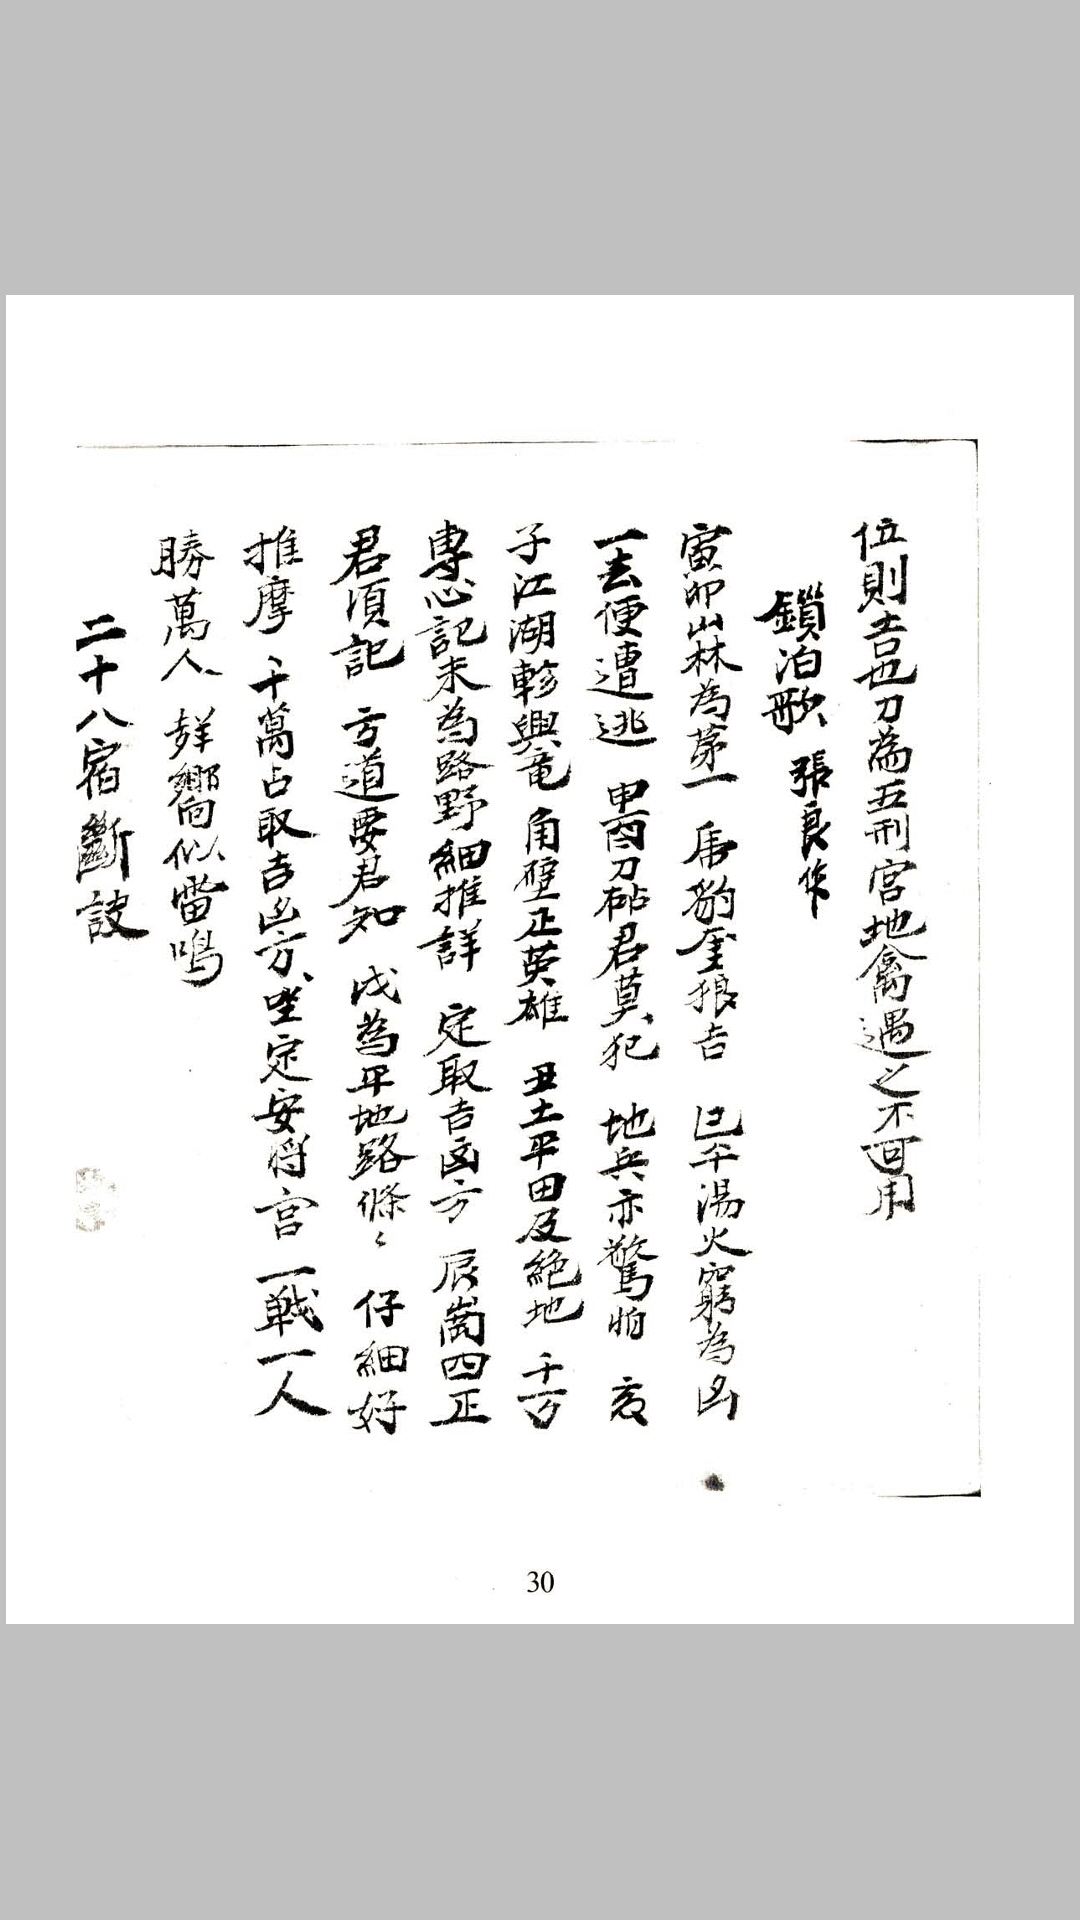 位則吉也刀為五刑宮地禽遇之不可用
鎖泊歌 張良作
寅卯山林為第一 虎豹奎狼吉 巳午湯火窮為凶
一去便遭逃 申酉刀砧君莫犯 地兵亦驚怕 亥
子江湖軫與竜 角壁正英雄 丑土平田及絕地 千万
專心記未為路野細推詳 定取吉凶方 辰崗四正
君須記 方道要君知 戌為平地路條〻 仔細好
推摩 千萬占取吉凶方 坐定安將宮 一戰一人
勝萬人 鮮響似雷鳴
二十八宿斷訣
30